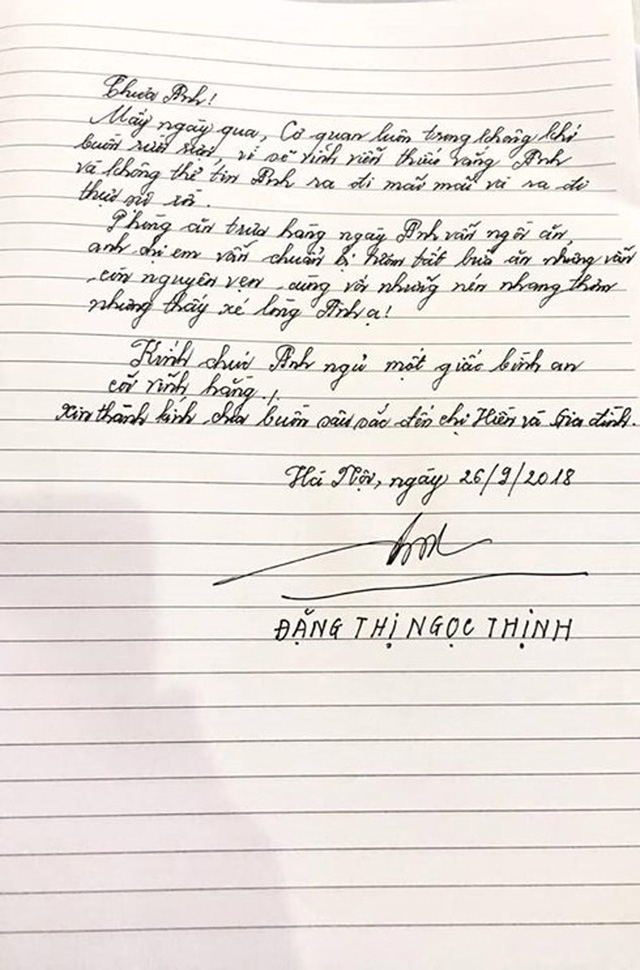 Thưa Anh!
Mấy ngày qua, Cơ quan luôn trong không khí
buồn rười rượi, vì sẽ vĩnh viễn thiếu vắng Anh
và không thể tin Anh ra đi mãi mãi và ra đi
thật sự rồi.
Phòng ăn trưa hàng ngày Anh vẫn ngồi ăn,
anh chị em vẫn chuẩn bị tươm tất bữa ăn nhưng vẫn
còn nguyên vẹn cùng với những nén nhang thơm
nhưng thấy xé lòng Anh ạ!
Kính chúc Anh ngủ một giấc bình an
cõi vĩnh hằng./.
Xin thành kính chia buồn sâu sắc đến chị Hiền và Gia đình.
Hà Nội, ngày 26/9/2018
ĐẶNG THỊ NGỌC THỊNH